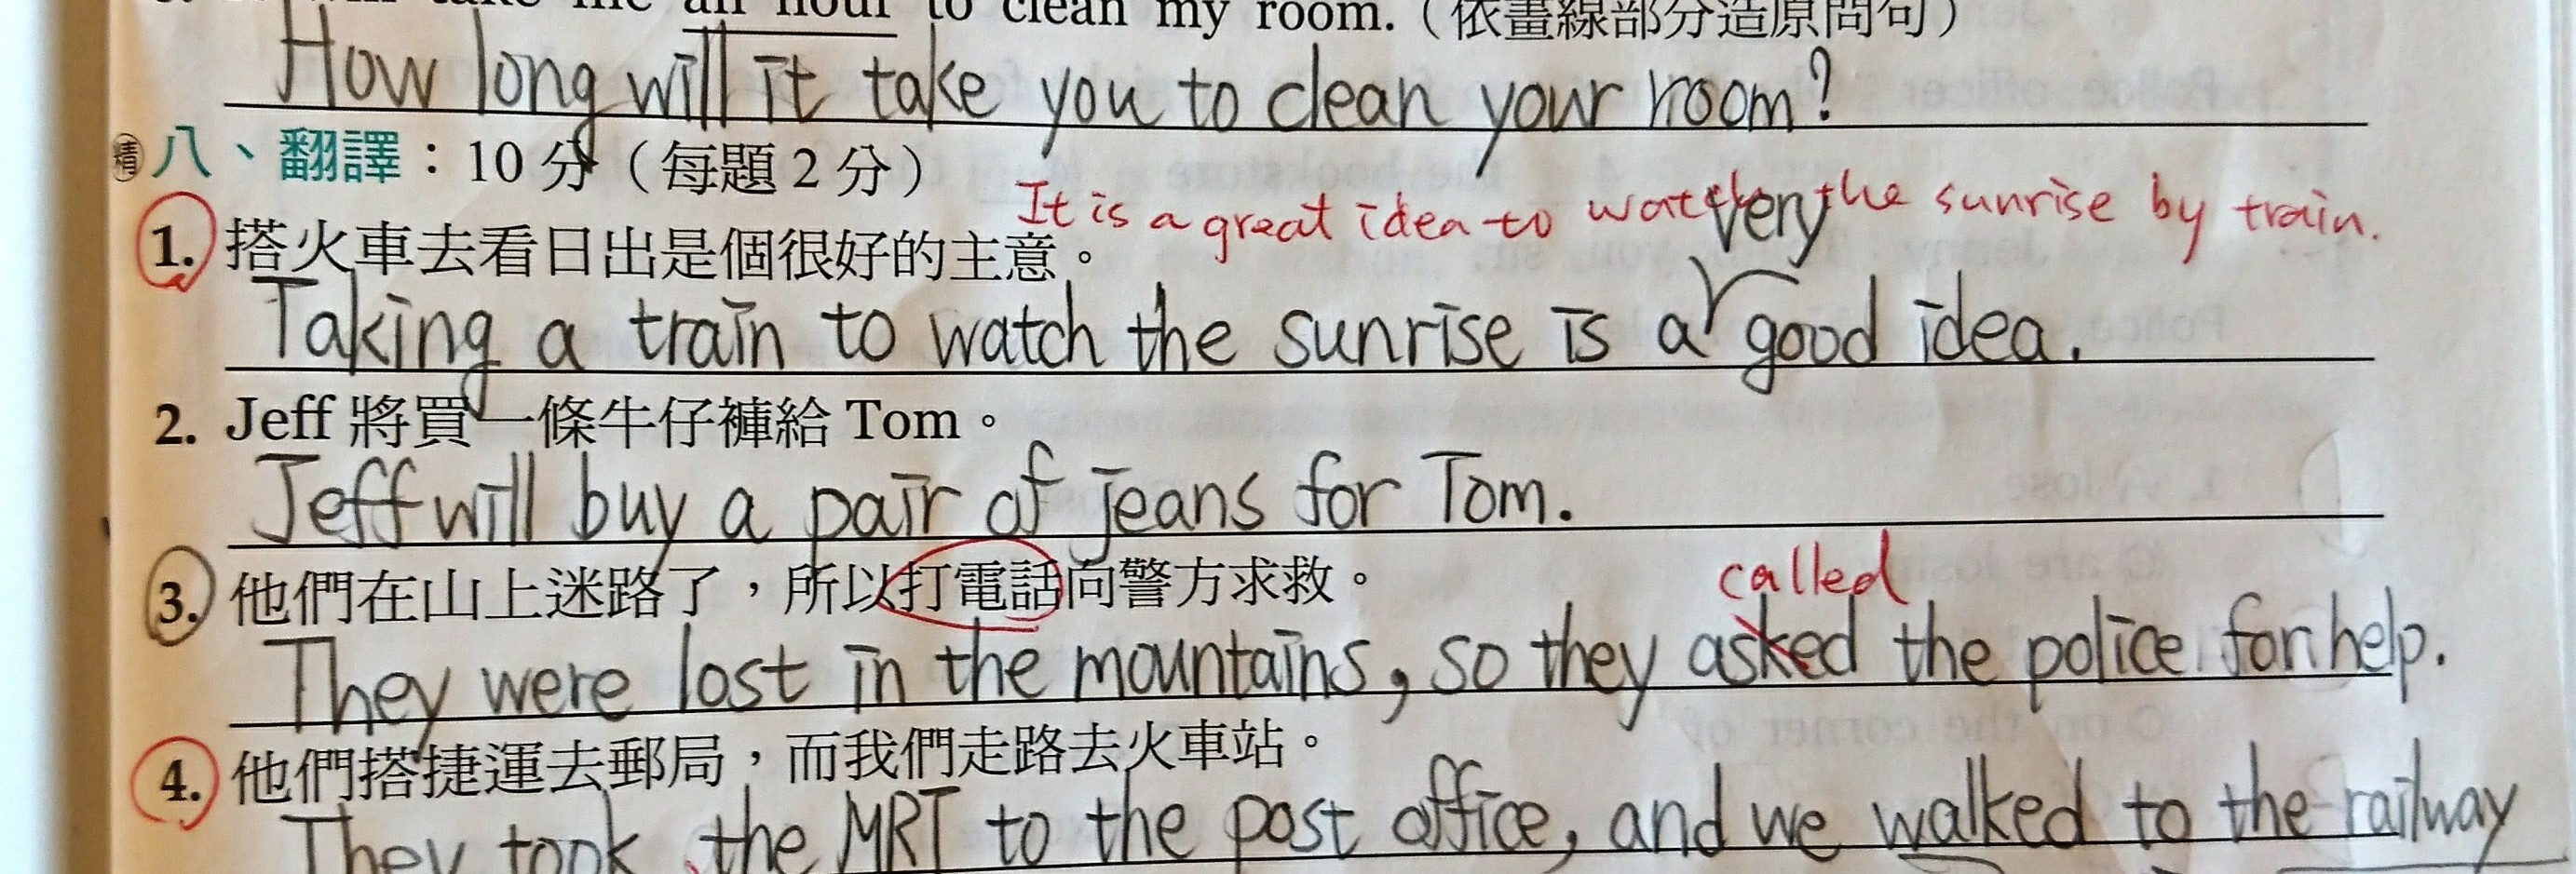 It will take me an hour to clean my room.（依畫線部分造原問句）
How long will it take you to clean your room?
精 八、翻譯：10 分（每題 2 分）
It is a great idea to watch the sunrise by train.
1. 搭火車去看日出是個很好的主意。
very
Taking a train to watch the sunrise is a good idea.
2. Jeff 將買一條牛仔褲給 Tom。
Jeff will buy a pair of jeans for Tom.
3. 他們在山上迷路了，所以打電話向警方求救。
called
They were lost in the mountains, so they asked the police for help.
4. 他們搭捷運去郵局，而我們走路去火車站。
They took the MRT to the post office, and we walked to the railway